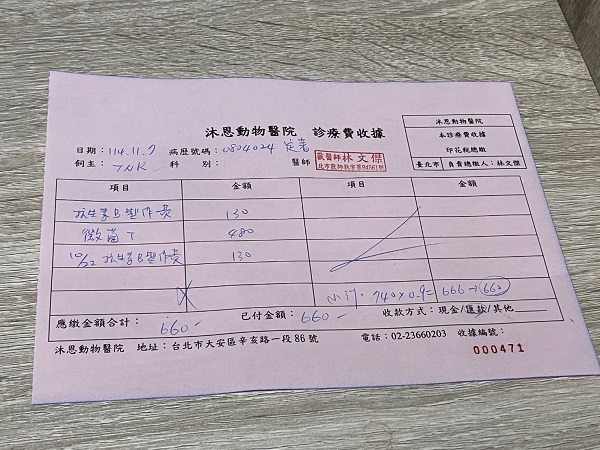 沐恩動物醫院　診療費收據
沐恩動物醫院
本診療費收據
印花稅總繳
臺北市 負責總繳人：林文傑
日期：114.11.7　病歷號碼：0804024
飼主：TNR　科　別：　醫師 獸醫師林文傑
項目　金額　項目　金額
抗生素B製作費　130
黴菌T　480
10/22 抗生素B製作費　130
小計：740×0.9=666→660
應繳金額合計：660-　已付金額：660-　收款方式：現金/匯款/其他
沐恩動物醫院　地址：台北市大安區辛亥路一段86號　電話：02-23660203　收據編號：
000471